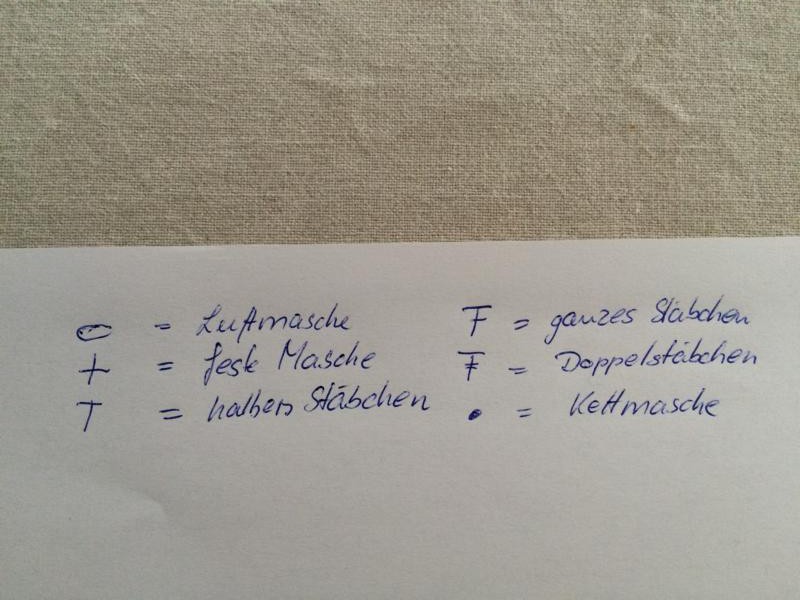 = Luftmasche
= feste Masche
+ = halbes Stäbchen
= ganzes Stäbchen
= Doppelstäbchen
• = Kettmasche